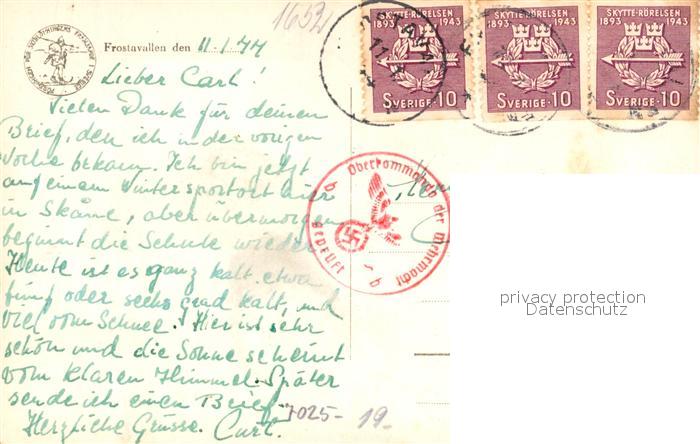 1652
Frostavallen den 11-1-44
Lieber Carl!
Vielen Dank für deinen
Brief, den ich in der vorigen
Woche bekam. Ich bin jetzt
auf einem Wintersportort hier
in Skåne, aber übermorgen
beginnt die Schule wieder
Heute ist es ganz kalt. etwa
fünf oder sechs grad kalt, und
viel vom Schnee. Hier ist sehr
schön und die Sonne scheint
vom klaren Himmel. Später
sende ich einen Brief.
Herzliche Grüsse. Curt.
7025- 19-
SKYTTE-RÖRELSEN
1893 1943
SVERIGE-10
SKYTTE-RÖRELSEN
1893 1943
SVERIGE-10
SKYTTE-RÖRELSEN
1893 1943
SVERIGE-10
Oberkommando der Wehrmacht
Geprüft
b
b
privacy protection
Datenschutz